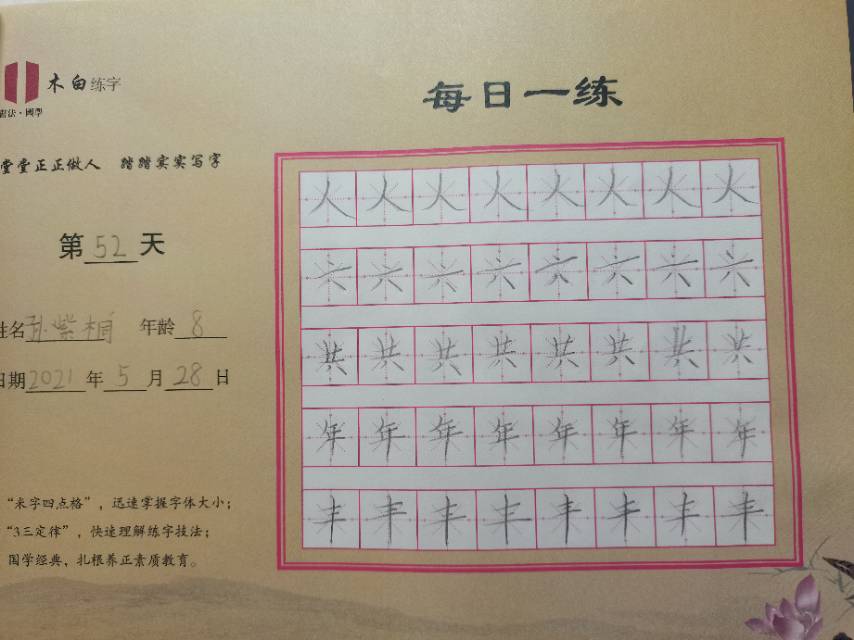 木白练字
書法·國學
每日一练
堂堂正正做人 踏踏实实写字
第52天
姓名孙紫桐 年龄8
日期2021年5月28日
人人人人人人人人
六六六六六六六六
共共共共共共共共
年年年年年年年年
丰丰丰丰丰丰丰丰
“米字四点格”，迅速掌握字体大小；
“3三定律”，快速理解练字技法；
国学经典，扎根养正素质教育。